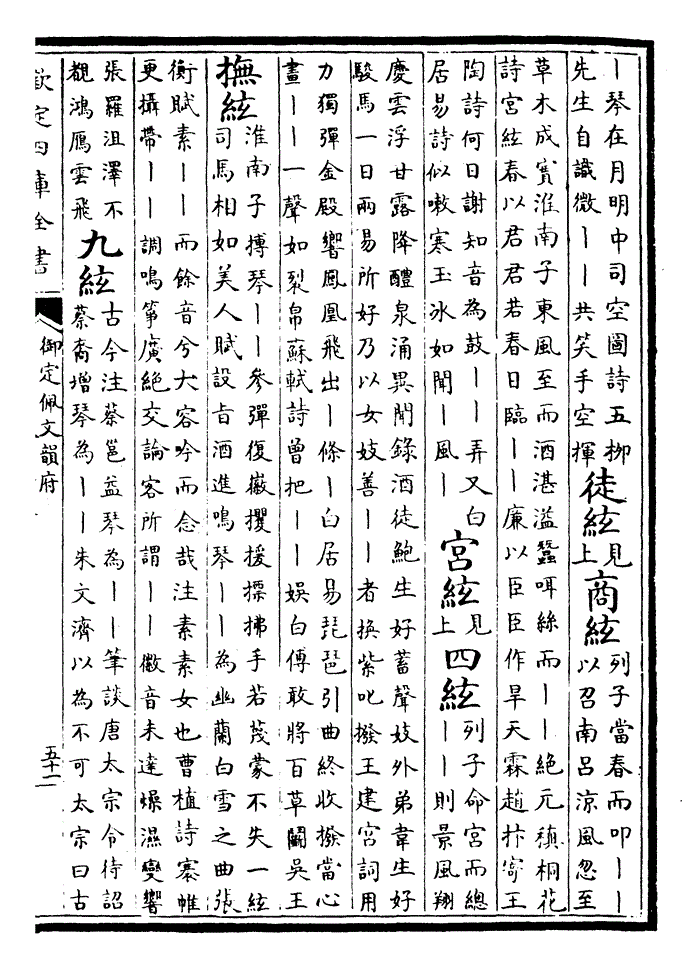 丨琴在月明中司空圖詩五柳
先生自識微丨丨共笑手空揮
徒絃
見
上
商絃
列子當春而叩丨丨
以召南呂涼風忽至
草木成實淮南子東風至而酒湛溢蠶咡絲而丨丨絶元稹桐花
詩宮絃春以君君若春日臨丨丨廉以臣臣作旱天霖趙抃寄王
陶詩何日謝知音為鼓丨丨弄又白
居易詩似嗽寒玉冰如聞丨風丨
宮絃
見
上
四絃
列子命宮而總
丨丨則景風翔
慶雲浮甘露降醴泉涌異聞錄酒徒鮑生好蓄聲妓外弟韋生好
駿馬一日兩易所好乃以女妓善丨丨者換紫叱撥王建宮詞用
力獨彈金殿響鳳凰飛出丨條丨白居易琵琶引曲終收撥當心
畫丨丨一聲如裂帛蘇軾詩曾把丨丨娛白傅敢將百草鬭吳王
撫絃
淮南子摶琴丨丨參彈復徽攫援摽拂手若蔑蒙不失一絃
司馬相如美人賦設旨酒進鳴琴丨丨為幽蘭白雪之曲張
衡賦素丨丨而餘音兮大容吟而念哉注素素女也曹植詩搴帷
更攝帶丨丨調鳴箏廣絶交論客所謂丨丨徽音未達燥濕變響
張羅沮澤不
覩鴻鴈雲飛
九絃
古今注蔡邕益琴為丨丨筆談唐太宗令待詔
蔡裔增琴為丨丨朱文濟以為不可太宗曰古
欽定四庫全書
御定佩文韻府
五十一